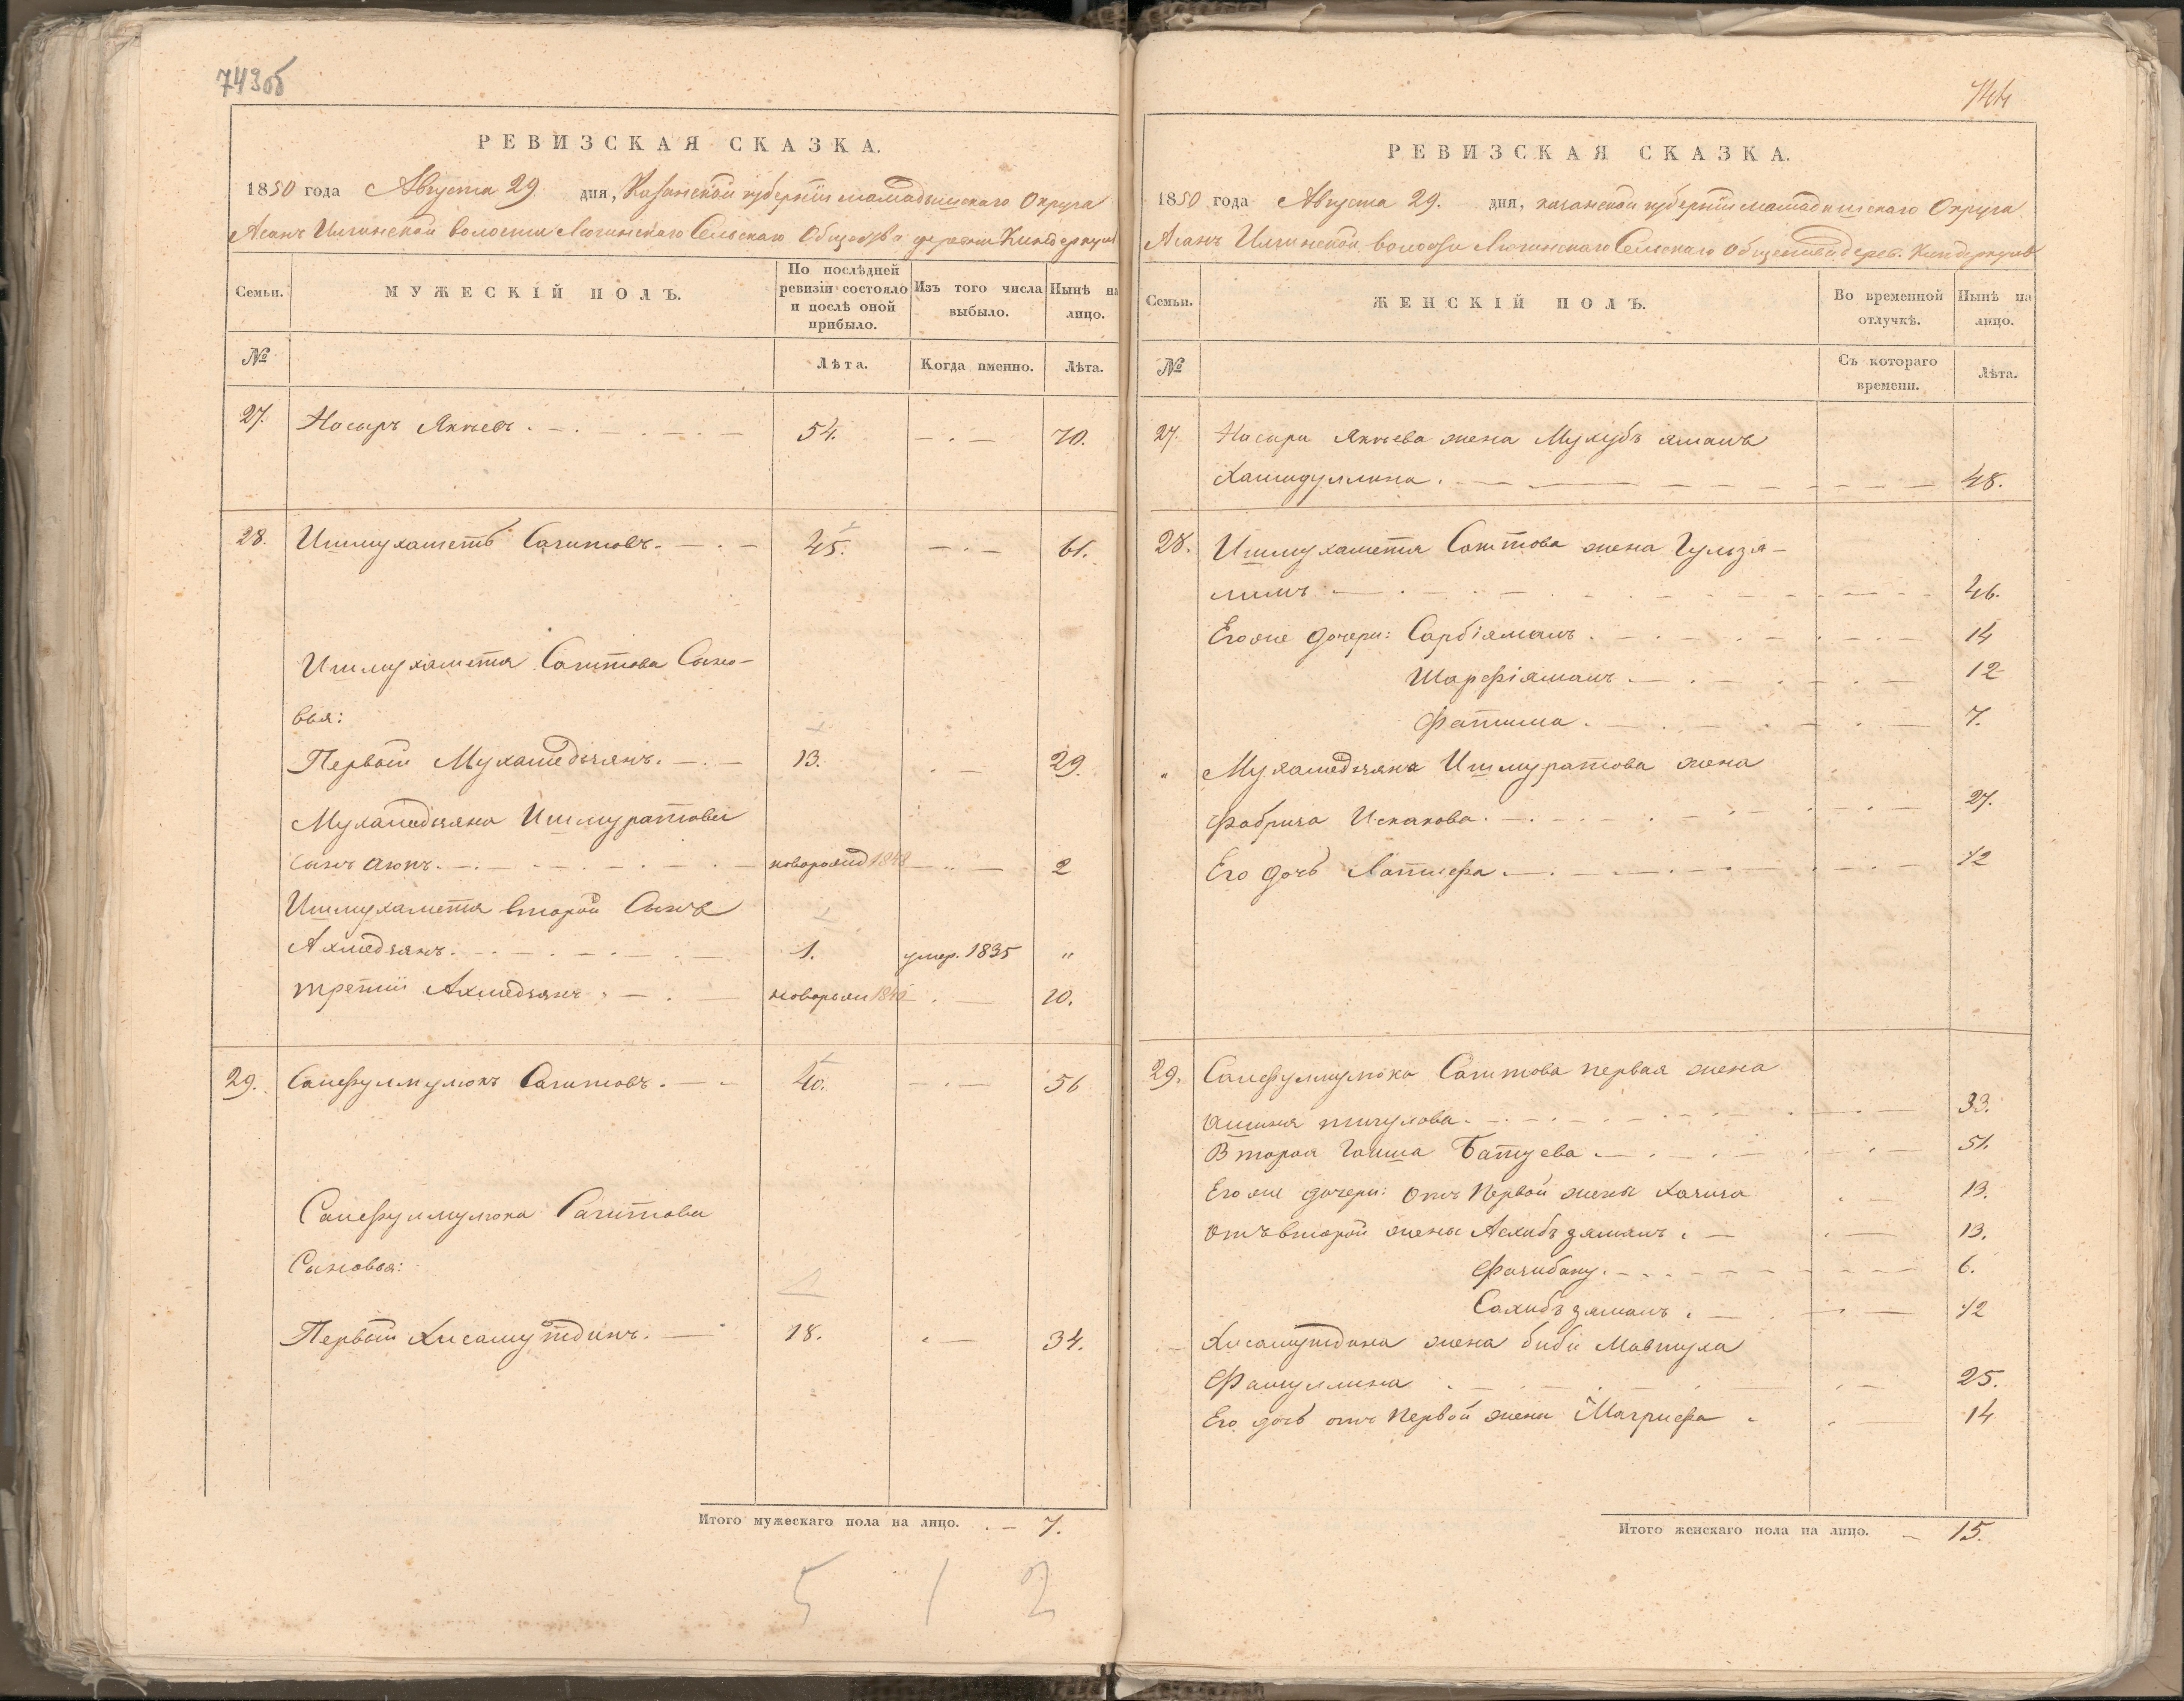 743об
РЕВИЗСКАЯ СКАЗКА.
1850 года Августа 29 дня, Казанской губернии мамадышскаго Округа
Асанъ Илгинской волости Лючинскаго Сельскаго Общества деревни Киндеркуль
Семьи. МУЖЕСКІЙ ПОЛЪ. По послѣдней ревизіи состояло и послѣ оной прибыло. Изъ того числа выбыло. Нынѣ на лицо.
№ Лѣта. Когда именно. Лѣта.
27. Носыръ Якупевъ. 54. 70.
28. Ишмухаметъ Сагитовъ. 45. 61.
Ишмухамета Сагитова Сыно-
вья:
Первый Мухамедьянъ. 13. 29.
Мухамедьяна Ишмуратова
сынъ Аюпъ. новорожд 1848 2
Ишмухамета второй Сынъ
Ахмедзянъ. 1. умер. 1835 "
третій Ахмедзянъ новорож 1840 10.
29. Сайфулмулюкъ Сагитовъ. 40. 56
Сайфулмулюка Сагитова
Сыновья:
Первый Хисамутдинъ. 18. 34.
Итого мужескаго пола на лицо. 7.
5 1 2
744
РЕВИЗСКАЯ СКАЗКА.
1850 года Августа 29. дня, казанской губерніи мамадышскаго Округа
Асанъ Илгинской волости Лючинскаго Сельскаго Общества дерев. Киндеркуль
Семьи. ЖЕНСКІЙ ПОЛЪ. Во временной отлучкѣ. Нынѣ на лицо.
№ Съ котораго времени. Лѣта.
27. Носыра Якупева жена Мухубъ ямалъ
Хамидуллина. 48.
28. Ишмухамета Сагитова жена Гульзя-
лимъ 46.
Его же дочери: Сарбіямалъ. 14
Шарфіямалъ 12
Фатима. 7.
" Мухамедьяна Ишмуратова жена
Фабриза Искакова. 27.
Его дочь Латифа. 1/2
29. Сайфулмулюка Сагитова первая жена
33.
Вторая Гайша Батуева 51.
Его же дочери: отъ первой жены 13.
отъ второй жены Асхибъ зямалъ. 13.
6.
Сахибъ зямалъ. 1/2
Хисамутдина жена биби Мавтуха
25.
Его дочь отъ первой жены Магрифа 14
Итого женскаго пола на лицо. 15.